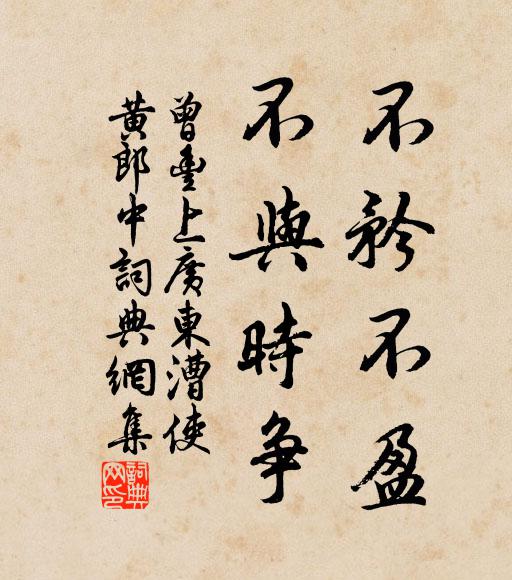 不矜不盈
不與時爭
曾豐上廣東漕使
黃郎中詞典網集
詞典
网印